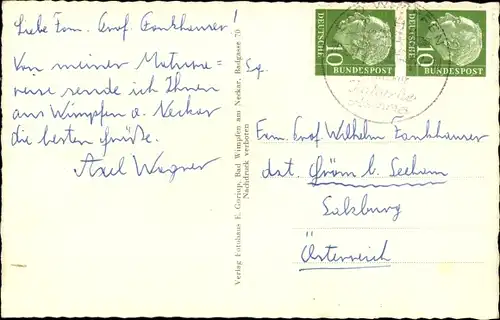 Liebe Fam. Graf. Fankhauser!
Von meiner Matura=
reise sende ich Ihnen
aus Wimpfen a. Neckar
die besten Grüße.
Axel Wagner
Verlag Fotohaus E. Goriup, Bad Wimpfen am Neckar, Badgasse 70
Nachdruck verboten
DEUTSCHE
10
BUNDESPOST
DEUTSCHE
10
BUNDESPOST
Fam. Graf Wilhelm Fankhauser
dzt. b. Seeham
Salzburg
Österreich